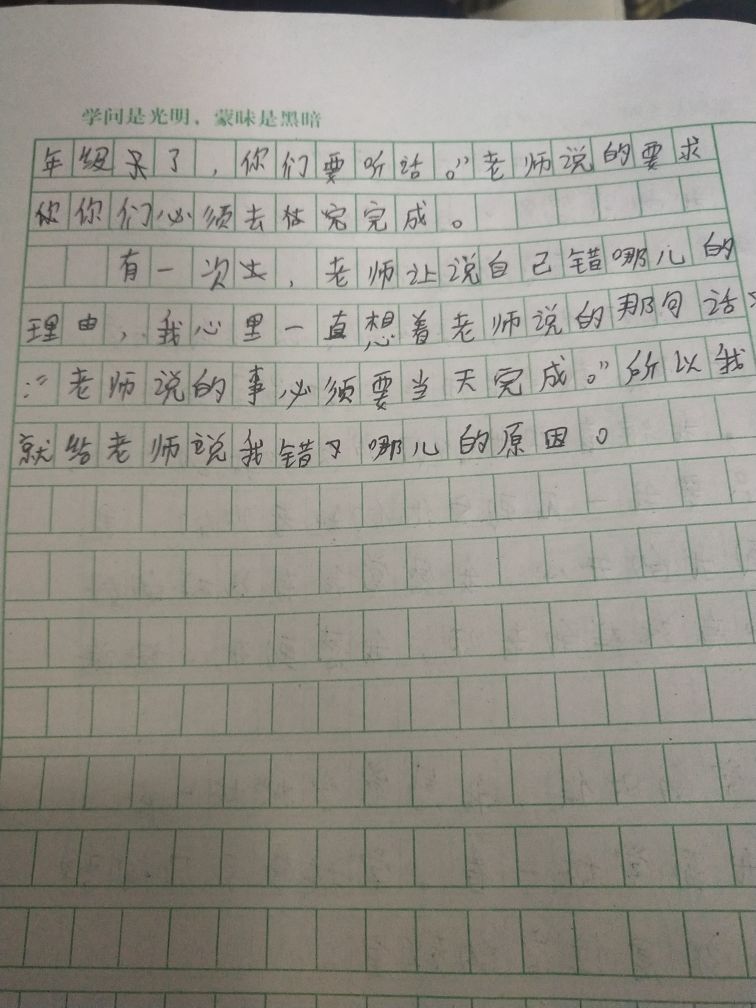 学问是光明、蒙昧是黑暗
年级呆了，你们要听话。”老师说的要求
你你们必须去完完成。
有一次，老师让说自己错哪儿的
理由，我心里一直想着老师说的那句话
：“老师说的事必须要当天完成。”所以我
就给老师说我错了哪儿的原因。